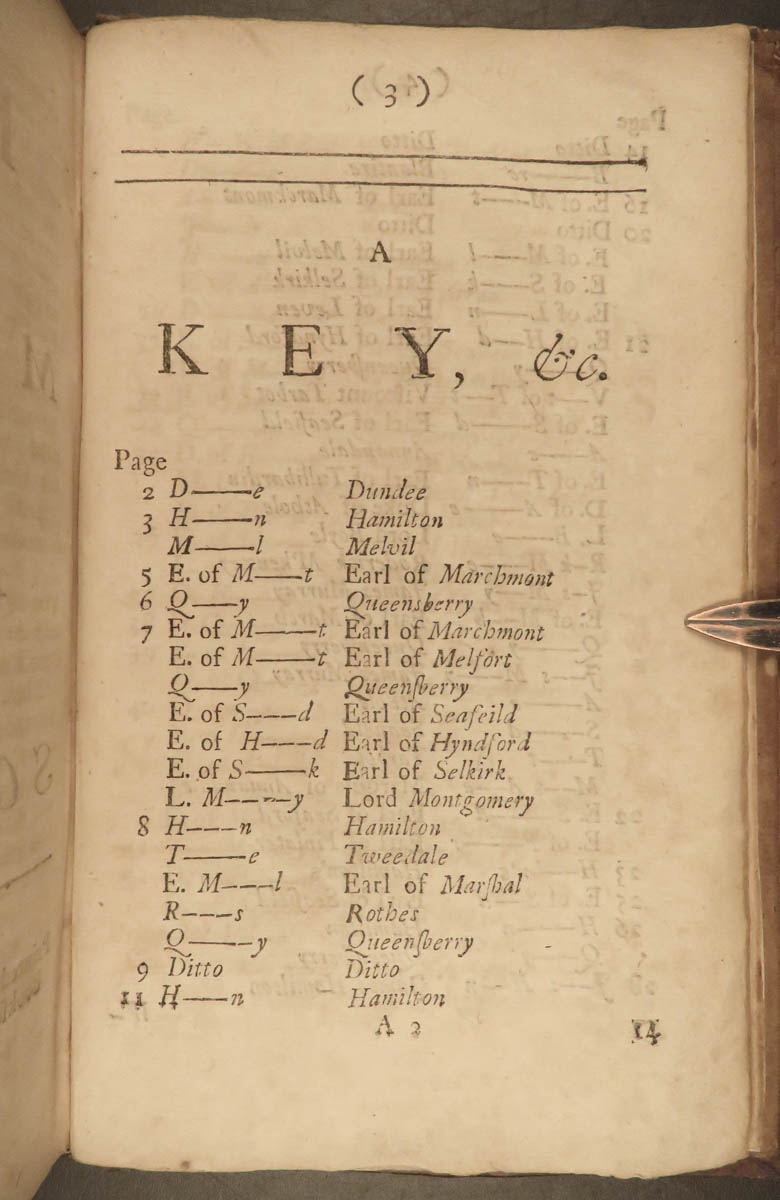 ( 3 )
A
KEY, &c.
Page
2 D——e Dundee
3 H——n Hamilton
M——l Melvil
5 E. of M——t Earl of Marchmont
6 Q——y Queensberry
7 E. of M——t Earl of Marchmont
E. of M——t Earl of Melfort
Q——y Queenſberry
E. of S——d Earl of Seafeild
E. of H——d Earl of Hyndford
E. of S——k Earl of Selkirk
L. M——y Lord Montgomery
8 H——n Hamilton
T——e Tweedale
E. M——l Earl of Marſhal
R——s Rothes
Q——y Queenſberry
9 Ditto Ditto
11 H——n Hamilton
A 2 14